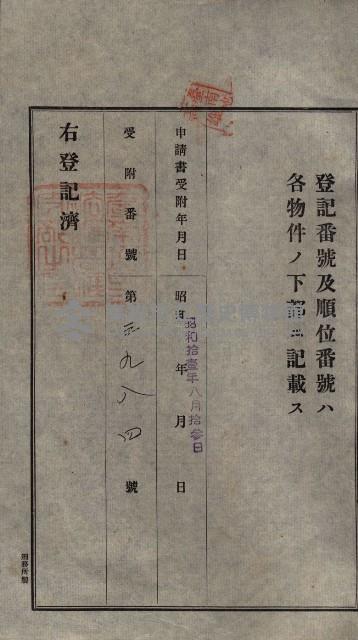 登記番號及順位番號ハ
各物件ノ下部ニ記載ス
申請書受附年月日 昭和 年 月 日
昭和拾壹年八月拾參日
受附番號 第三九八四號
右登記濟